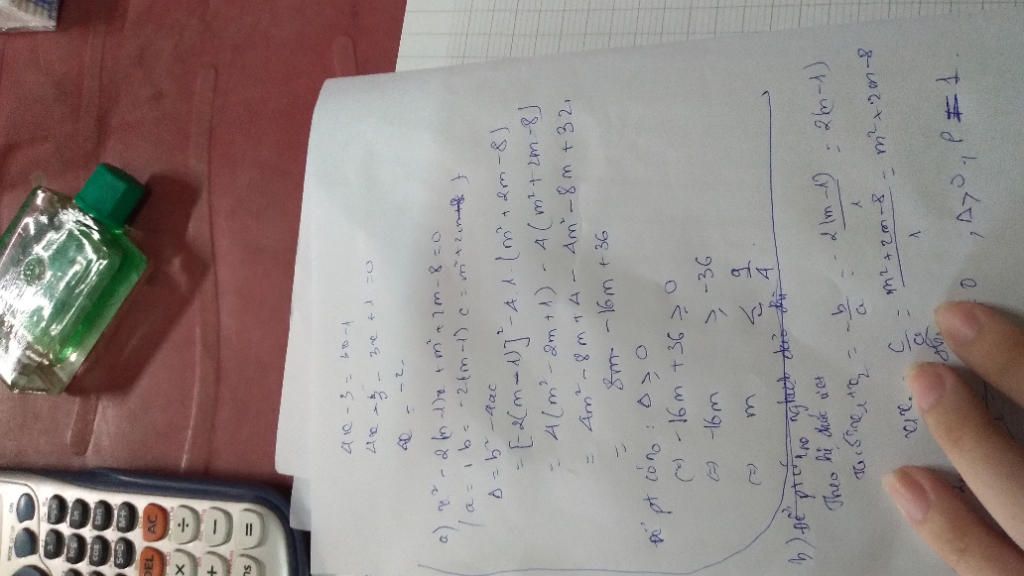 4x - 3 = 3x - 1
4x - 3 - 3x + 1 = 0
x = -2
a) x² - 2(m-1)x + m² + 2m - 8 = 0
(a = 1 b = -2(m-1) c = m² + 2m - 8)
Δ = b² - 4ac
= [-2(m-1)]² - 4.1.(m² + 2m - 8)
= 4(m² - 2m + 1) - 4(m² + 2m - 8)
= 4m² - 8m + 4 - 4m² - 8m + 32
= 8m - 16m + 36
Để pt có n₀ : Δ ≥ 0
(=) -16m + 36 ≥ 0
(=) -16m ≥ -36
(=) m ≤ 9/4
b) Để pt có n₀
Theo hệ thức viet
x₁ + x₂ = -b/a = - -2(m-1)/1 = 2(m-1)
x₁x₂ = c/a = m² + 2m - 8/1 = m² + 2m - 8
= 0 , Δ > 0 , P = 1
AC
DEL
÷
-
=
×
+
Ans
ON
MODE